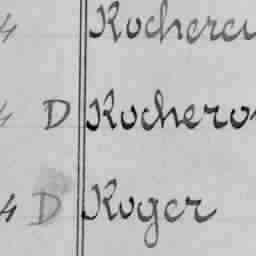 4 Rochereu
4 D Rocheron
4 D Roger